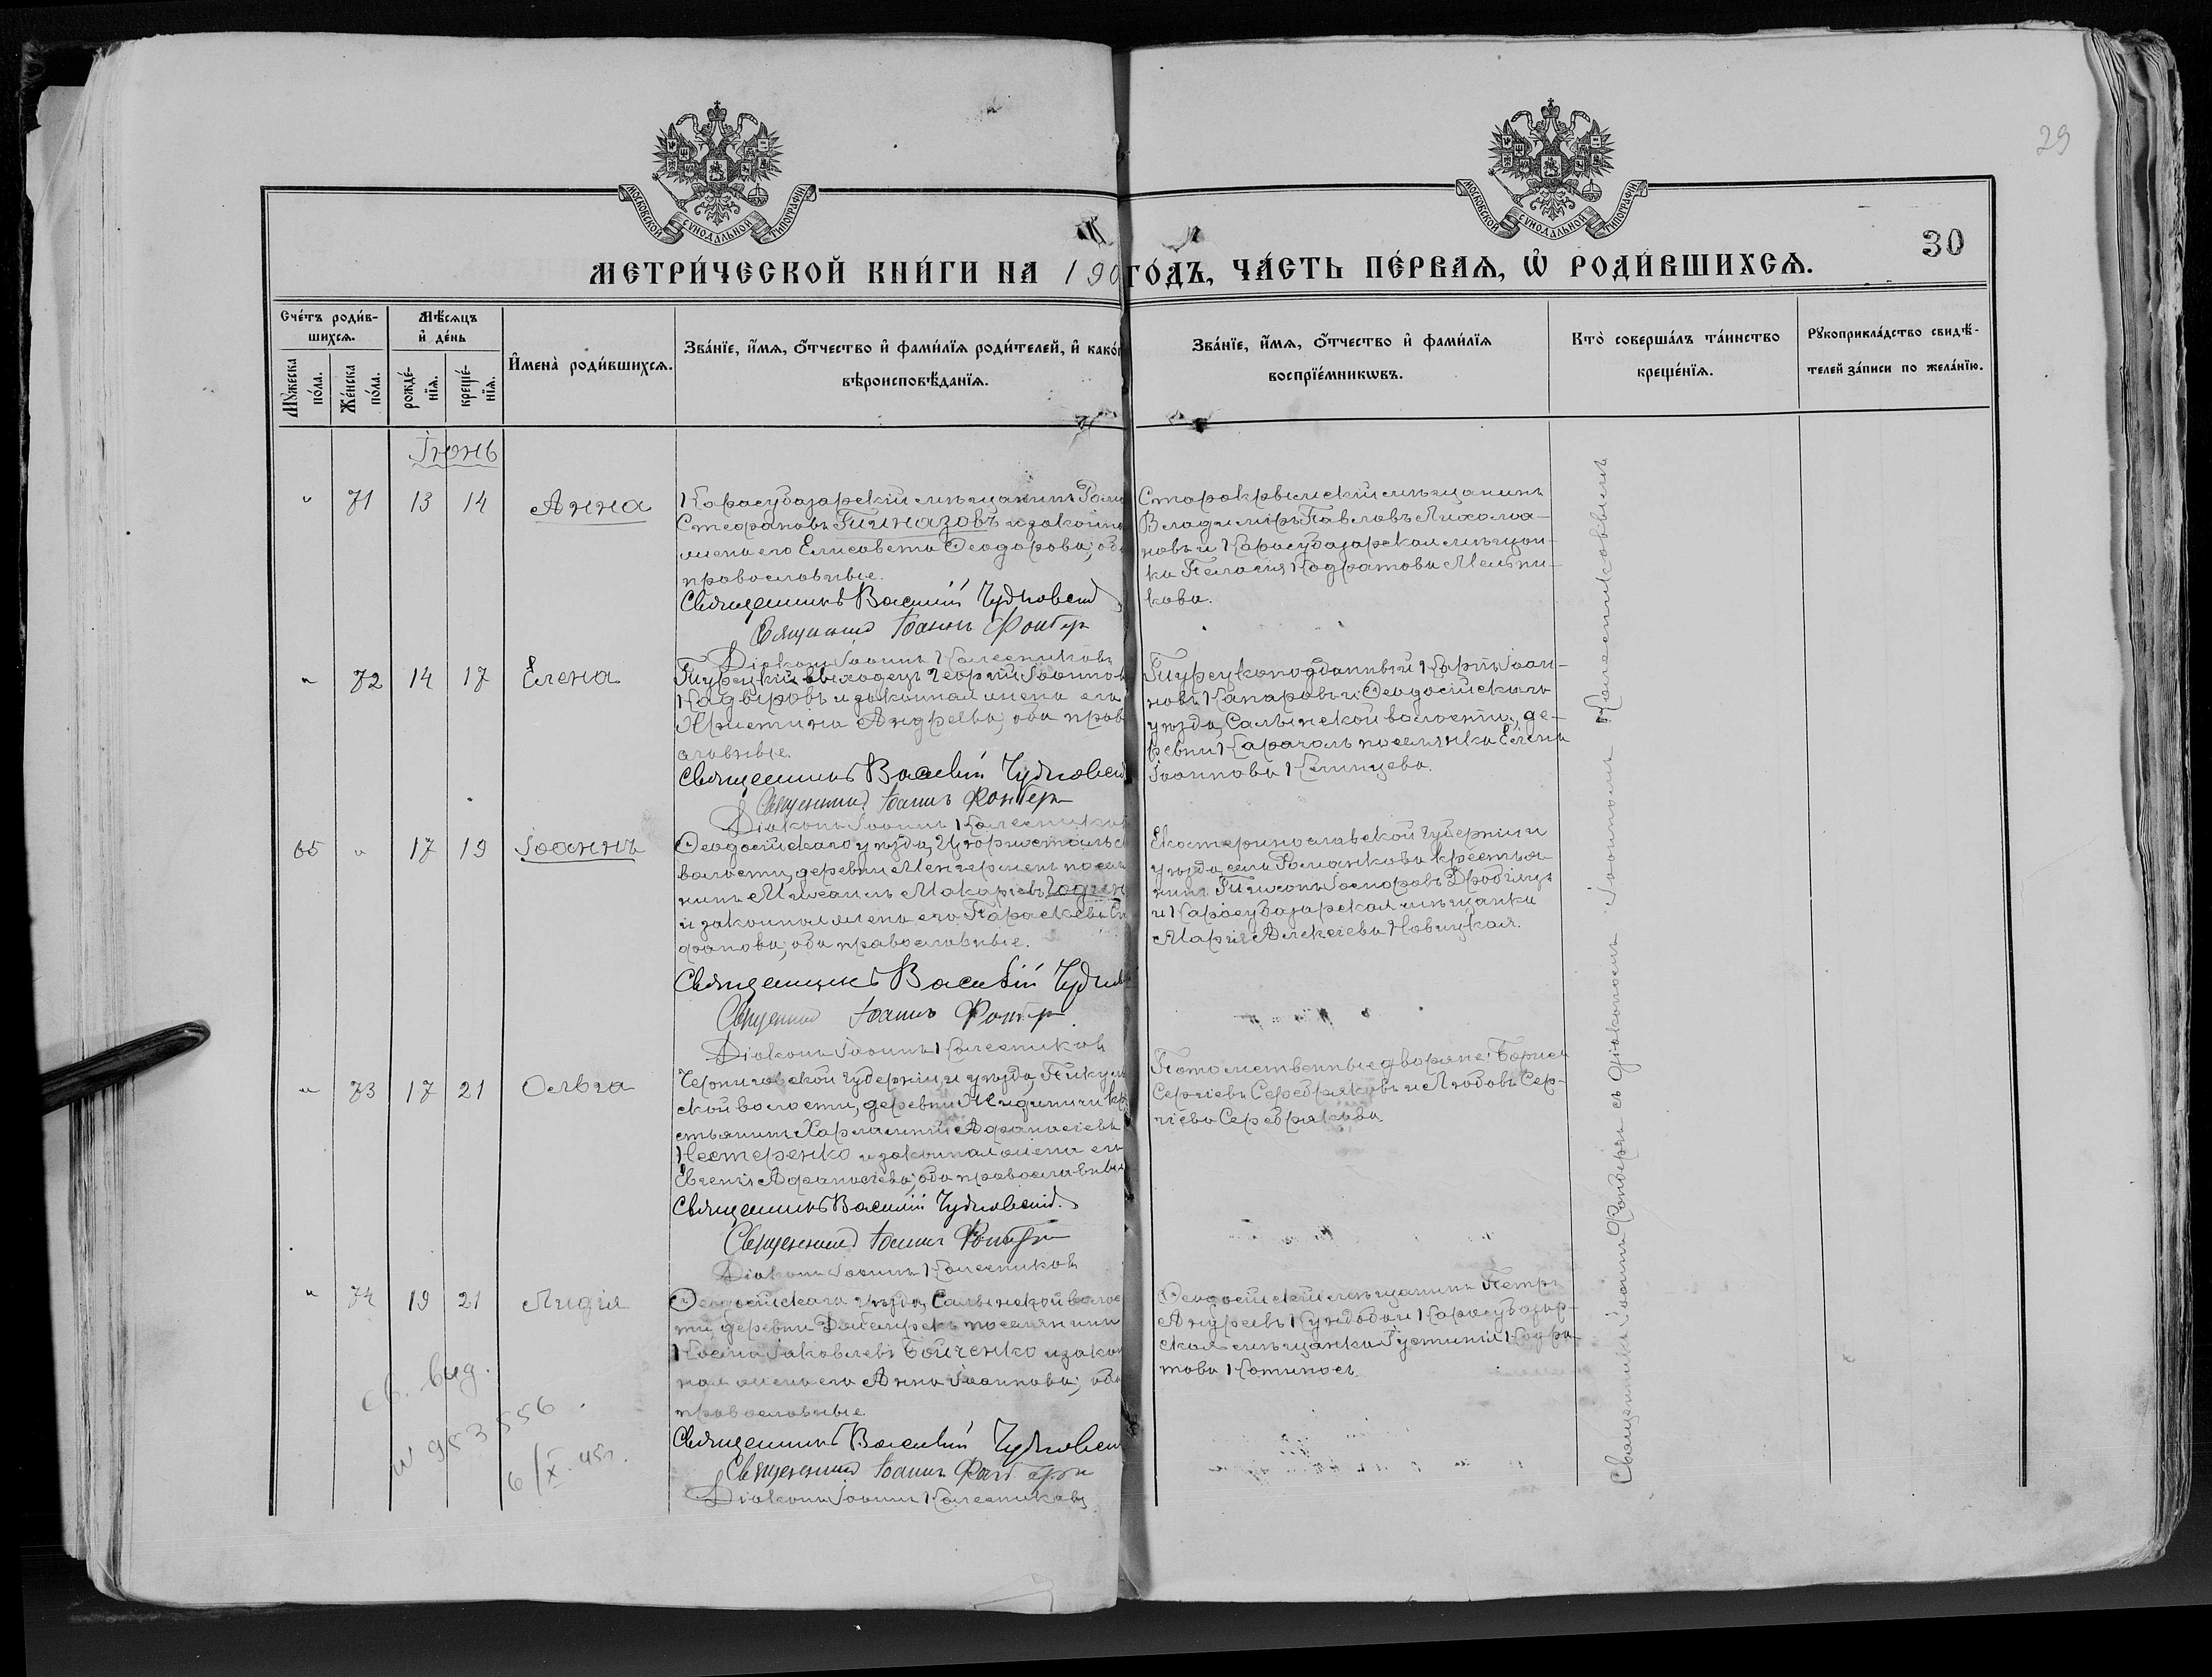 29
30
МОСКОВСКОЙ СѴНОДАЛЬНОЙ ТИПОГРАФІИ
МОСКОВСКОЙ СѴНОДАЛЬНОЙ ТИПОГРАФІИ
МЕТРИ́ЧЕСКОЙ КНИ́ГИ НА 190 ГО́ДЪ, ЧА́СТЬ ПЕ́РВАѦ, Ѡ҆ РОДИ́ВШИХСѦ.
Сче́тъ роди́в-
шихсѧ.
Мꙋ́жеска по́ла.
Же́нска по́ла.
Мѣ́сѧцъ
и҆ де́нь
рожде́-
нїѧ.
креще́-
нїѧ.
И҆мена̀ роди́вшихсѧ.
Зва́нїе, и҆́мѧ, ѻ҆́тчество и҆ фами́лїѧ роди́телей, и҆ како́
вѣроисповѣ́данїѧ.
Зва́нїе, и҆́мѧ, ѻ҆́тчество и҆ фами́лїѧ
воспрїе́мникѡвъ.
Кто̀ соверша́лъ та́инство
креще́нїѧ.
Рꙋкоприкла́дство свидѣ́-
телей за́писи по жела́нїю.
Іюнь
" 71 13 14 Анна
Карасубазарскій мѣщанинъ
Стефановъ Тиназовъ и законна
жена его Елисавета Ѳеодорова; оба
православные.
Священникъ Василій Чудновскій
Священникъ Іоаннъ Фонберъ
Діаконъ Іоаннъ Колесниковъ
Старокрымскій мѣщанинъ
Владиміръ Павловъ
новъ и Карасубазарская мѣщан-
ка Пелагія Кодратова Мельни-
кова.
" 72 14 17 Елена
Турецкій выходецъ Георгій Іоаннов
и законная жена его
Христина Андреева; оба прав
славные.
Священникъ Василій Чудновскій
Священникъ Іоаннъ Фонберъ
Діаконъ Іоаннъ Колесников
Турецкоподданный Іоан-
новъ Капаровъ и Ѳеодосійскаго
уѣзда, Салынской волости, де-
ревни Карачоль поселянка Елена
Іоаннова
65 " 17 19 Іоаннъ
Ѳеодосійскаго уѣзда, Цюрихтальск
волости, деревни посел
нинъ Михаилъ Макаріевъ
и законная жена его Параскева
фанова; оба православные.
Священникъ Василій Чудно
Священникъ Іоаннъ Фонберъ
Діаконъ Іоаннъ Колесников
Екатеринославской губерніи и
уѣзда, села Романкова крестья-
нинъ Тихонъ
и Карасубазарская мѣщанка
Марія Алексіева Новицкая.
" 73 17 21 Ольга
Черниговской губерніи и уѣзда,
ской волости, деревни кр
стьянинъ Харлампій Афанасіевъ
Нестеренко и законная жена его
Евгенія Афанасіева; оба православны
Священникъ Василій Чудновскій.
Священникъ Іоаннъ Фонберъ
Діаконъ Іоаннъ Колесников
Потомственные дворяне: Борисъ
Сергіевъ Серебряковъ и Любовь Сер-
гіева Серебрякова.
" 74 19 21 Лидія
Ѳеодосійскаго уѣзда, Салынской волос
ти, деревни поселянинъ
Косма Іаковлевъ Бойченко и закон
ная жена его Анна Іоаннова; оба
православные.
Священникъ Василій Чудновскій
Священникъ Іоаннъ Фонберъ
Діаконъ Іоаннъ Колесниковъ
Ѳеодосійскій мѣщанинъ Петръ
Андреевъ и Карасубазар-
ская мѣщанка Іустинія Кодра-
това
св. выд.
№ 953556.
6/X 45г.
Священникъ Іоаннъ Фонберъ съ діакономъ Іоанномъ Колесниковымъ